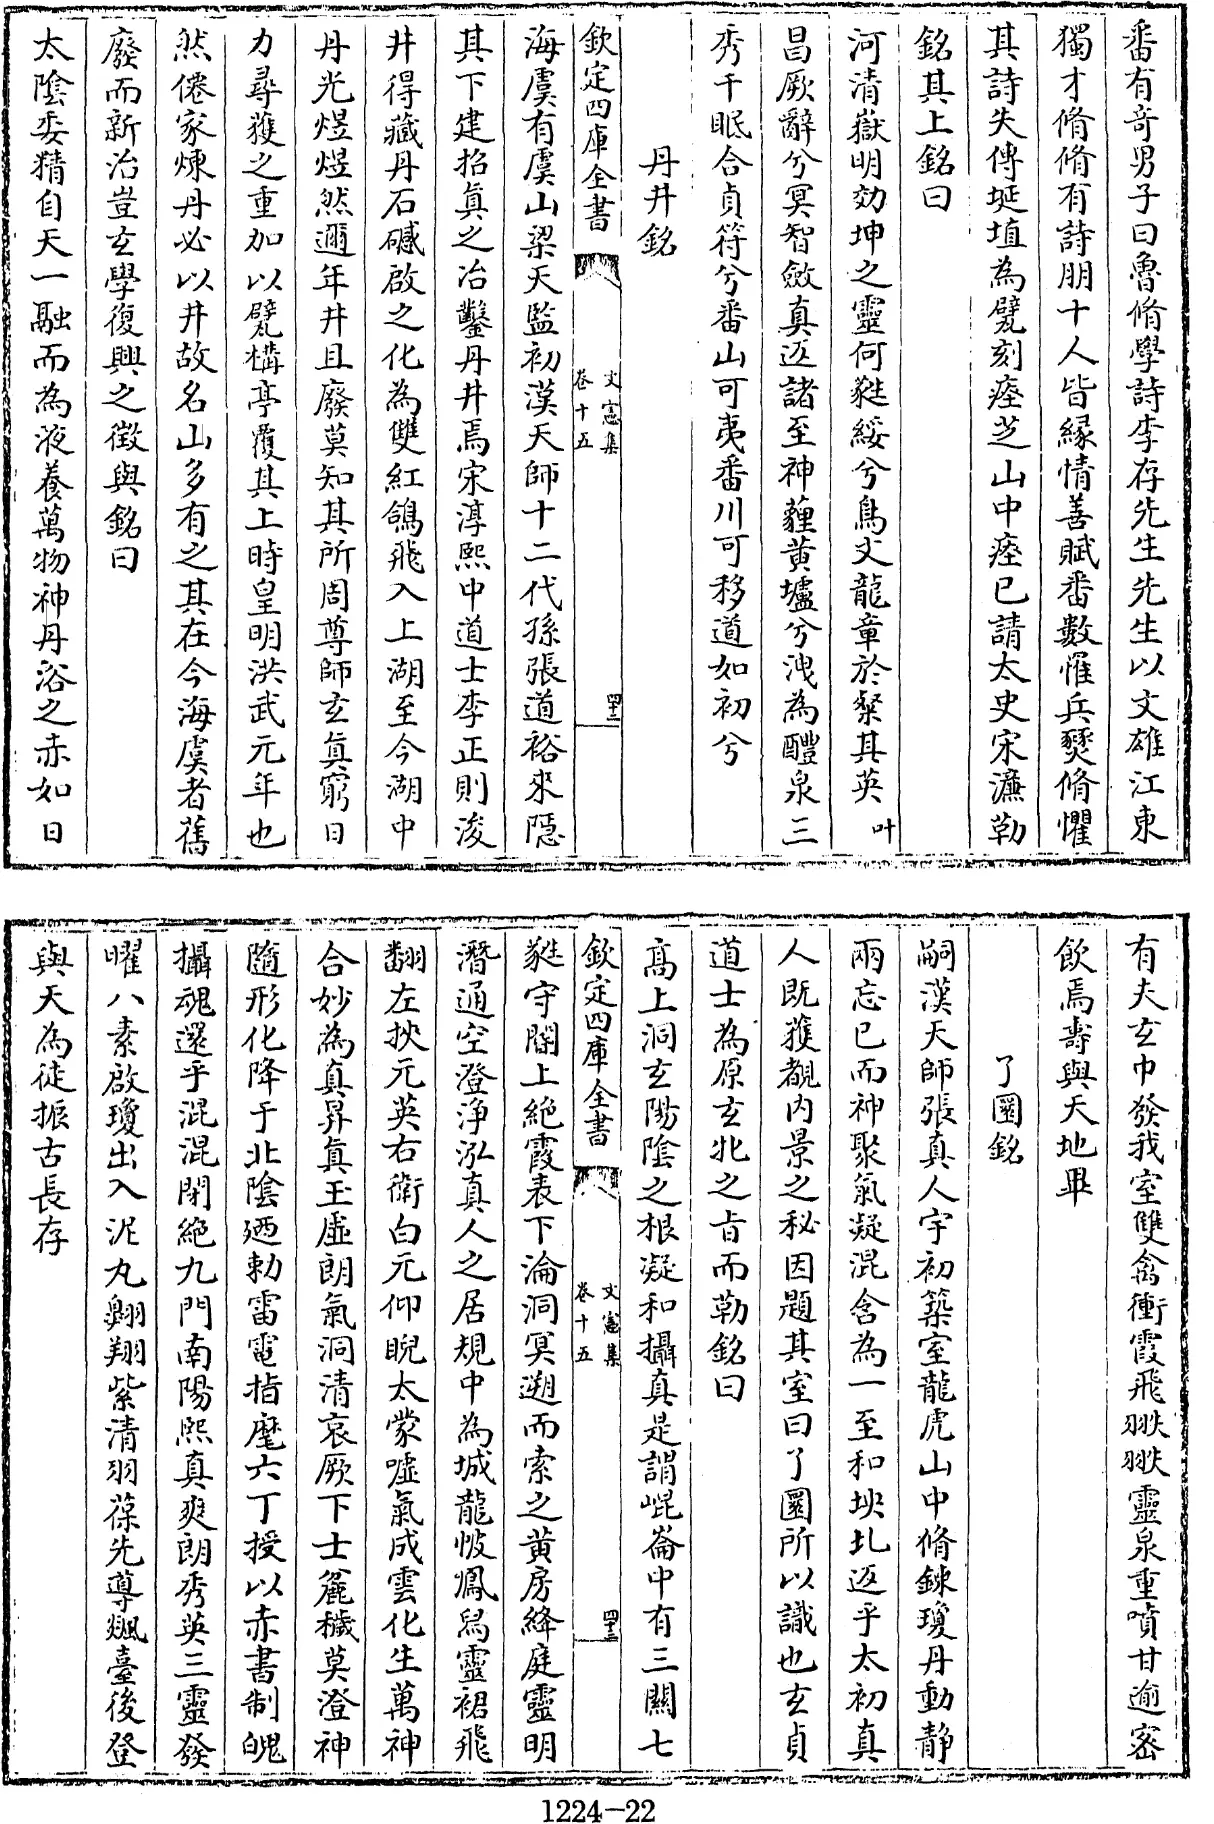 番有奇男子曰魯脩學詩李存先生先生以文雄江東
獨才脩脩有詩朋十人皆緣情善賦番數罹兵燹脩懼
其詩失傳埏埴為甓刻瘞芝山中瘞已請太史宋濂勒
銘其上銘曰
河清嶽明効坤之靈何蕤綏兮鳥文龍章於粲其英叶
昌厥辭兮冥智斂真返諸至神薶黄壚兮洩為醴泉三
秀千眠合貞符兮番山可夷番川可移道如初兮
丹井銘
欽定四庫全書
文憲集
卷十五
四十二
海虞有虞山梁天監初漢天師十二代孫張道裕來隱
其下建招真之治鑿丹井焉宋淳熙中道士李正則浚
井得藏丹石礚啟之化為雙紅鴿飛入上湖至今湖中
丹光煜煜然邇年井且廢莫知其所周尊師玄真窮日
力尋獲之重加以甓構亭覆其上時皇明洪武元年也
然僊家煉丹必以井故名山多有之其在今海虞者舊
廢而新治豈玄學復興之徵與銘曰
太陰委精自天一融而為液養萬物神丹浴之赤如日
有夫玄巾發我室雙禽衝霞飛翐翐靈泉重噴甘逾密
飲焉壽與天地畢
了圜銘
嗣漢天師張真人宇初築室龍虎山中脩鍊瓊丹動静
兩忘已而神聚氣凝混含為一至和坱圠返乎太初真
人既獲覩内景之秘因題其室曰了圜所以識也玄貞
道士為原玄牝之旨而勒銘曰
高上洞玄陽陰之根凝和攝真是謂崐崙中有三關七
欽定四庫全書
文憲集
卷十五
四十三
蕤守關上絶霞表下淪洞冥遡而索之黄房絳庭靈明
潛通空澄浄泓真人之居規中為城龍帔鳳舄靈裙飛
翻左挾元英右衛白元仰睨太蒙噓氣成雲化生萬神
合妙為真昇真玉虚朗氣洞清哀厥下士麄穢莫澄神
隨形化降于北陰廼勅雷電指麾六丁授以赤書制魄
攝魂還乎混混閉絶九門南陽熙真爽朗秀英三靈發
曜八素啟瓊出入泥丸翺翔紫清羽葆先導飈臺後登
與天為徒振古長存
1224-22